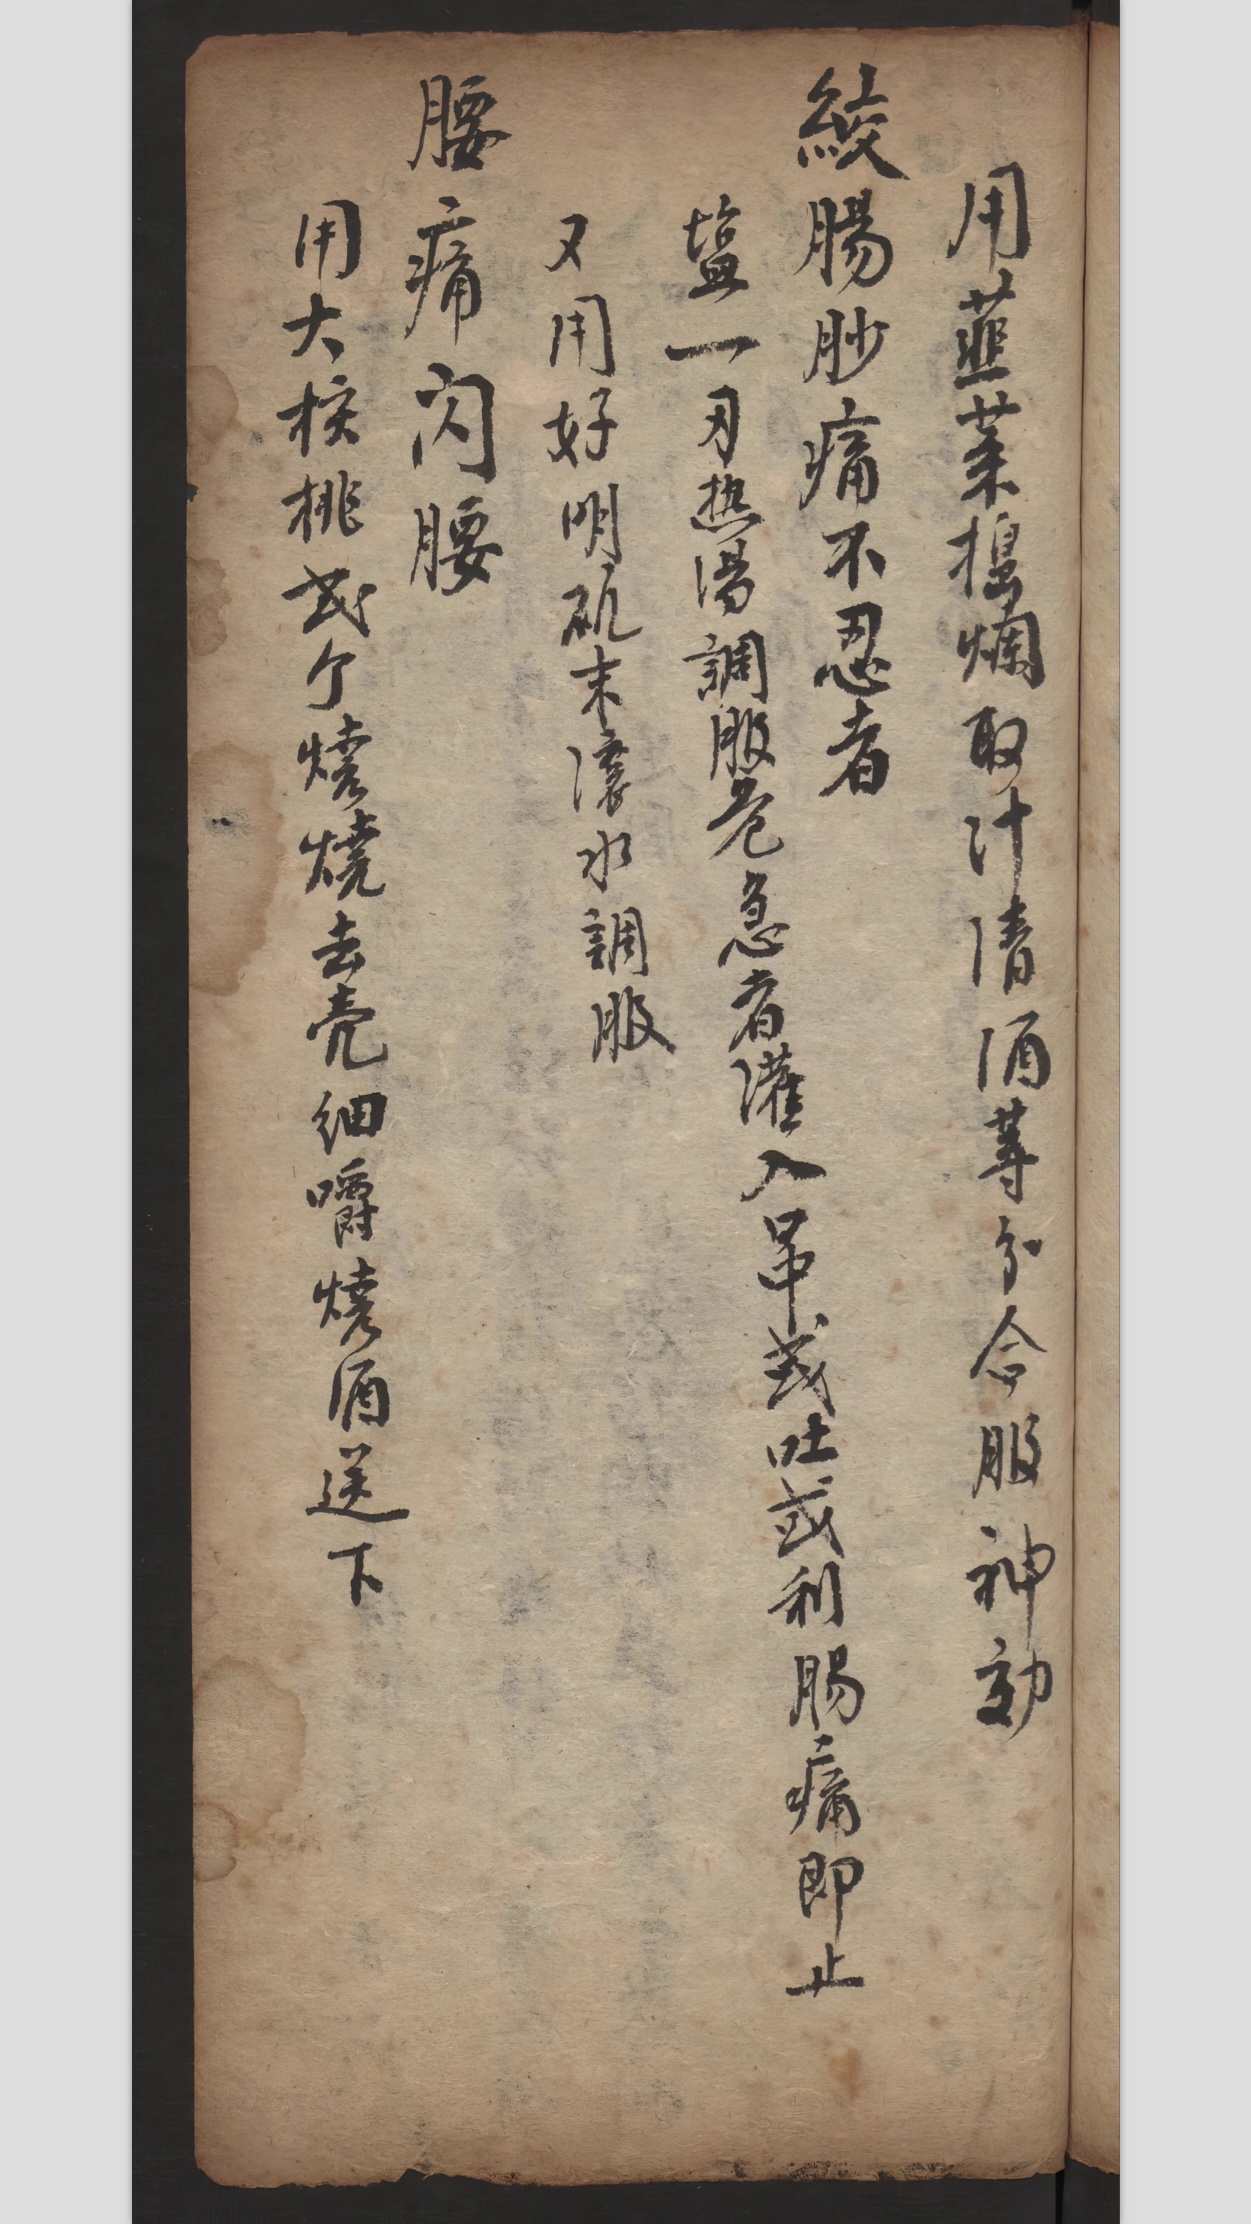 用韮菜搗爛取汁清酒等分合服神効
絞腸肳痛不忍者
塩一刃热湯調服危急者灌入吊或吐或利腸痛即止
又用好明矾末滚水調服
腰痛閃腰
用大核桃弍个燒燒去壳細嚼燒酒送下